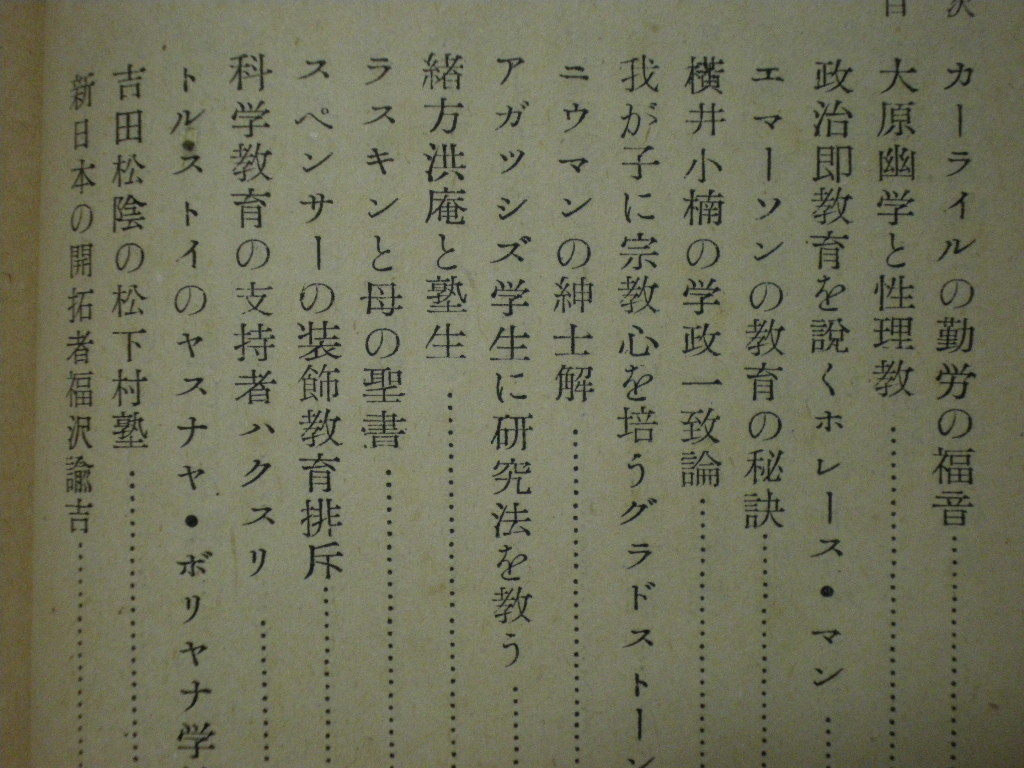 目次
カーライルの勤労の福音
大原幽学と性理教
政治即教育を説くホレース・マン
エマーソンの教育の秘訣
横井小楠の学政一致論
我が子に宗教心を培うグラドストーン
ニウマンの紳士解
アガッシズ学生に研究法を教う
緒方洪庵と塾生
ラスキンと母の聖書
スペンサーの装飾教育排斥
科学教育の支持者ハクスリ
トルストイのヤスナヤ・ボリヤナ学
吉田松陰の松下村塾
新日本の開拓者福沢諭吉